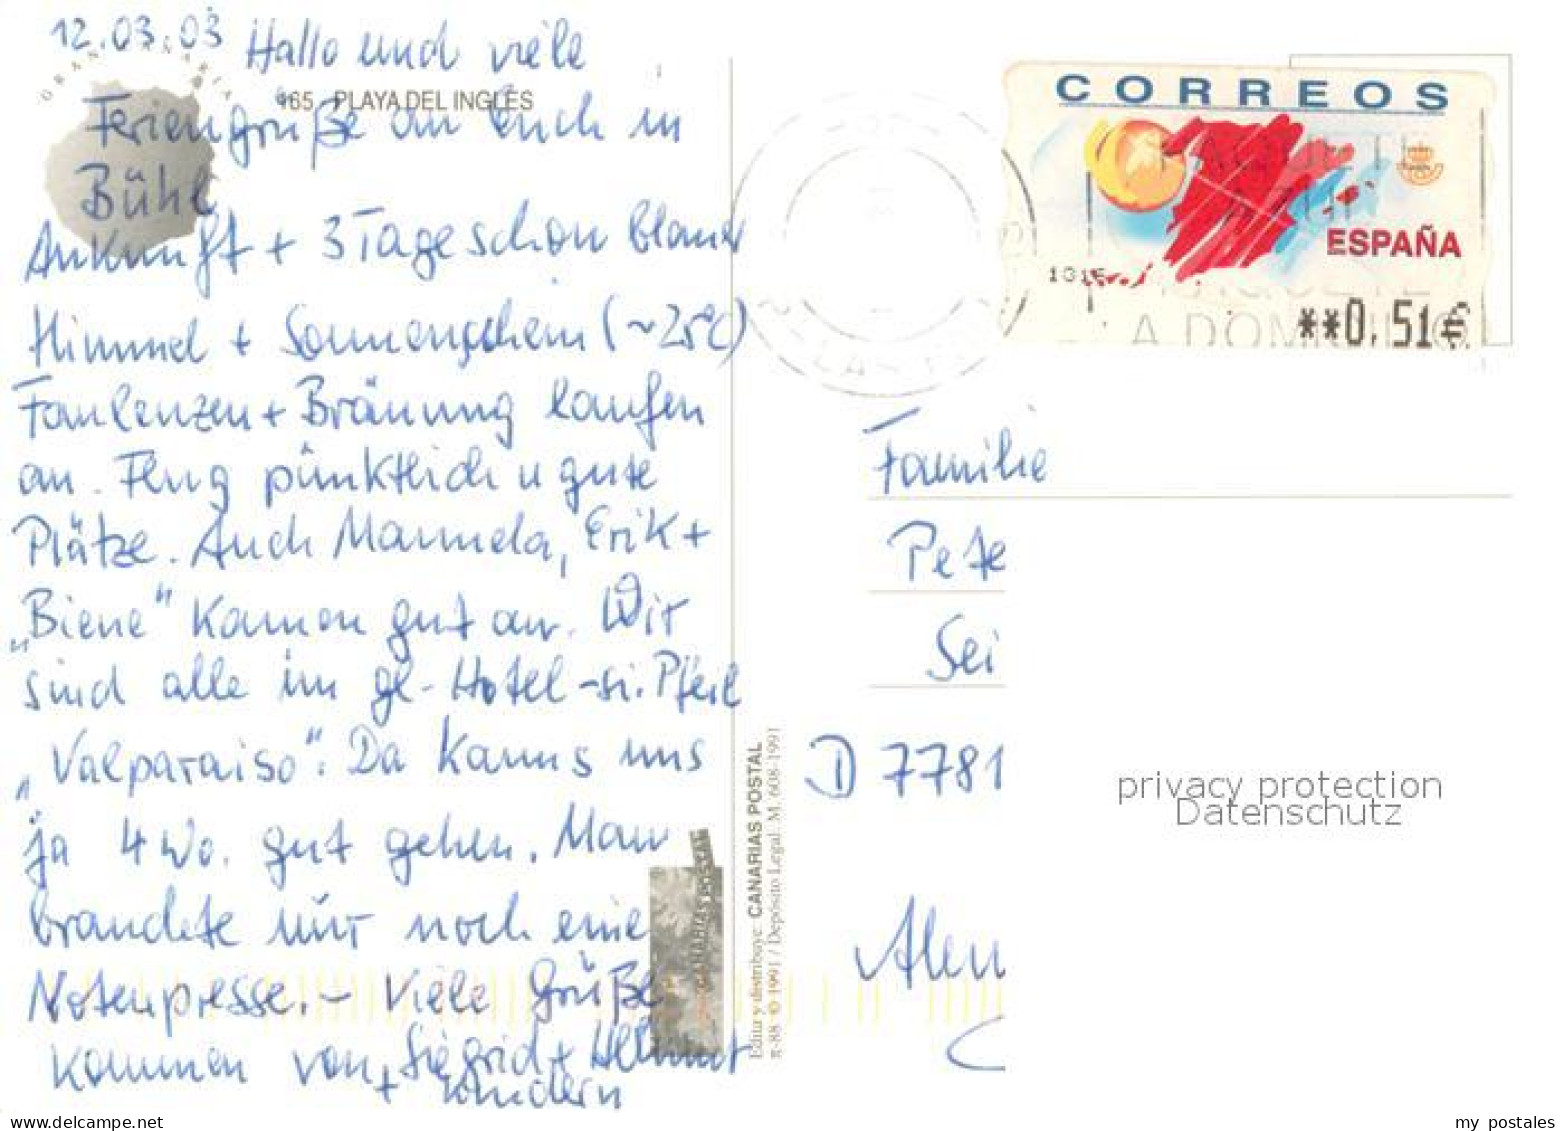 12.03.03 Hallo und viele
GRAN CANARIA
165 PLAYA DEL INGLES
Feriengrüße an Euch in
Bühl
Ankunft + 3 Tage schon blauer
Himmel + Sonnenschein (~25°C)
Faulenzen + Bräunung laufen
an. Flug pünktlich u gute
Plätze. Auch Manuela, Erik +
„Biene" kamen gut an. Wir
sind alle im gl. Hotel - si. Pfeil
„Valparaiso". Da kanns uns
ja 4 Wo. gut gehen. Man
brauchte nur noch eine
Notenpresse. - Viele Grüße
kommen von Sigrid + Helmut
+ Kindern
Edita y distribuye: CANARIAS POSTAL
π-88 © 1991 / Depósito Legal: M. 608-1991
CANARIAS POSTAL
CORREOS
ESPAÑA
**0,51€
A DOMICILIO
Familie
Pete
Sei
D 7781
Alem
privacy protection
Datenschutz
www.delcampe.net
my_postales